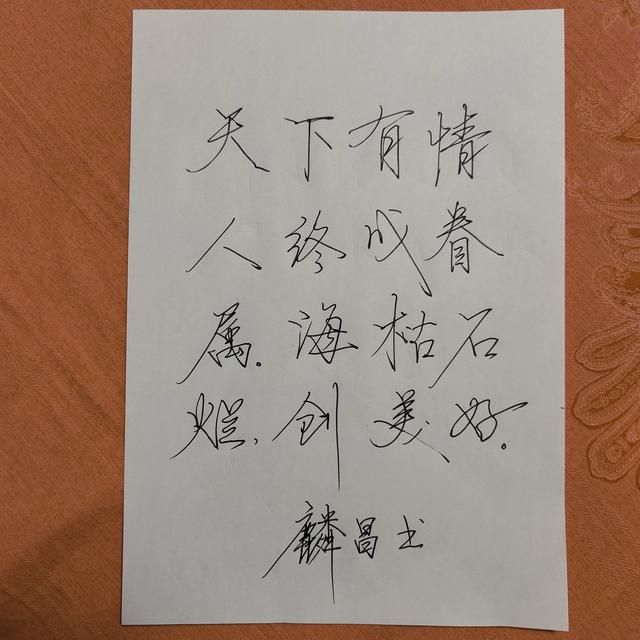 天下有情
人终成眷
属。海枯石
烂,创美好。
麟昌书